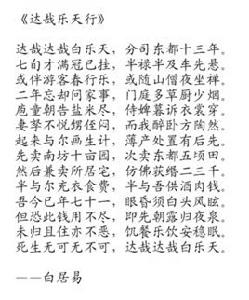 《达哉乐天行》
达哉达哉白乐天，分司东都十三年。
七旬才满冠已挂，半禄未及车先悬。
或伴游客春行乐，或随山僧夜坐禅。
二年忘却问家事，门庭多草厨少烟。
庖童朝告盐米尽，侍婢暮诉衣裳穿。
妻孥不悦甥侄闷，而我醉卧方陶然。
起来与尔画生计，薄产处置有后先。
先卖南坊十亩园，次卖东都五顷田。
然后兼卖所居宅，仿佛获缗二三千。
半与尔充衣食费，半与吾供酒肉钱。
吾今已年七十一，眼昏须白头风眩。
但恐此钱用不尽，即先朝露归夜泉。
未归且住亦不恶，饥餐乐饮安稳眠。
死生无可无不可，达哉达哉白乐天。
——白居易